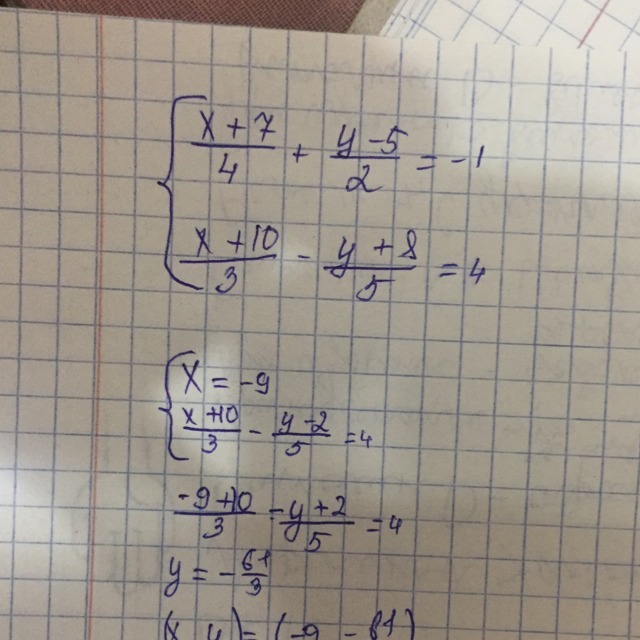 { (x+7)/4 + (y-5)/2 = -1
(x+10)/3 - (y+8)/5 = 4
{ x = -9
(x+10)/3 - (y-2)/5 = 4
(-9+10)/3 - (y+2)/5 = 4
y = -61/3
(x, y) = (-9 - 61)